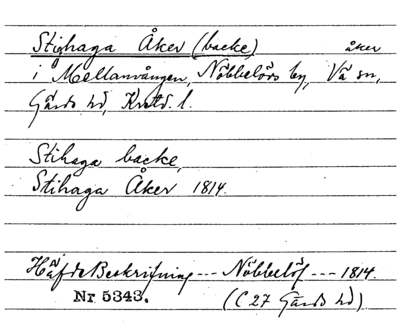 Stighaga Åker (backe) åker
i Mellanvången, Nöbbelövs by, Vä sn,
Gärds hd, Krstd. l.
Stihaga backe,
Stihaga Åker 1814.
Häfde Beskrifning --- Nöbbelöf --- 1814.
Nr 5343. (C 27 Gärds hd)